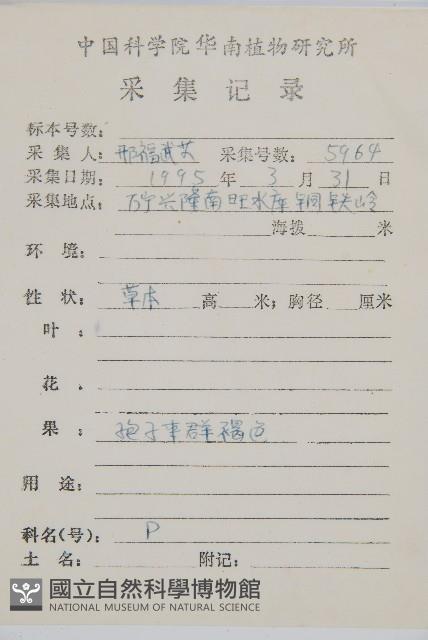 中国科学院华南植物研究所
采集记录
标本号数:
采集人: 邢福武 采集号数: 5964
采集日期: 1995 年 3 月 31 日
采集地点: 万宁兴隆南旺水库铜铁岭
海拨 米
环境:
性状: 草本 高 米; 胸径 厘米
叶:
花:
果: 孢子囊群褐色
用途:
科名(号): P
土名: 附记:
國立自然科學博物館
NATIONAL MUSEUM OF NATURAL SCIENCE